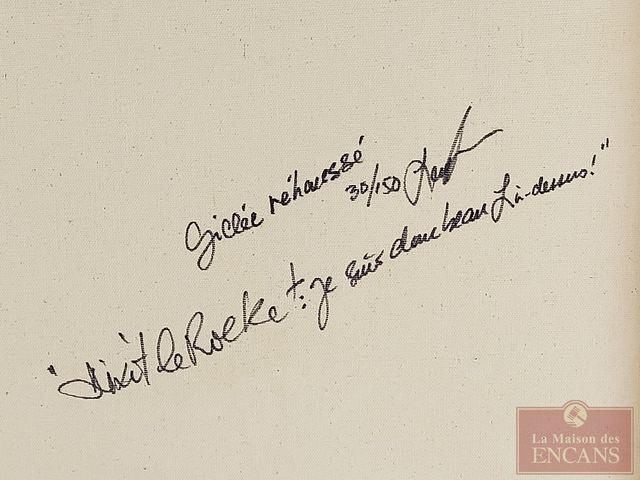 Giclée réhaussé
30/150
"Dixit le Rocket: je suis donc beau Là-dessus!"
La Maison des
ENCANS